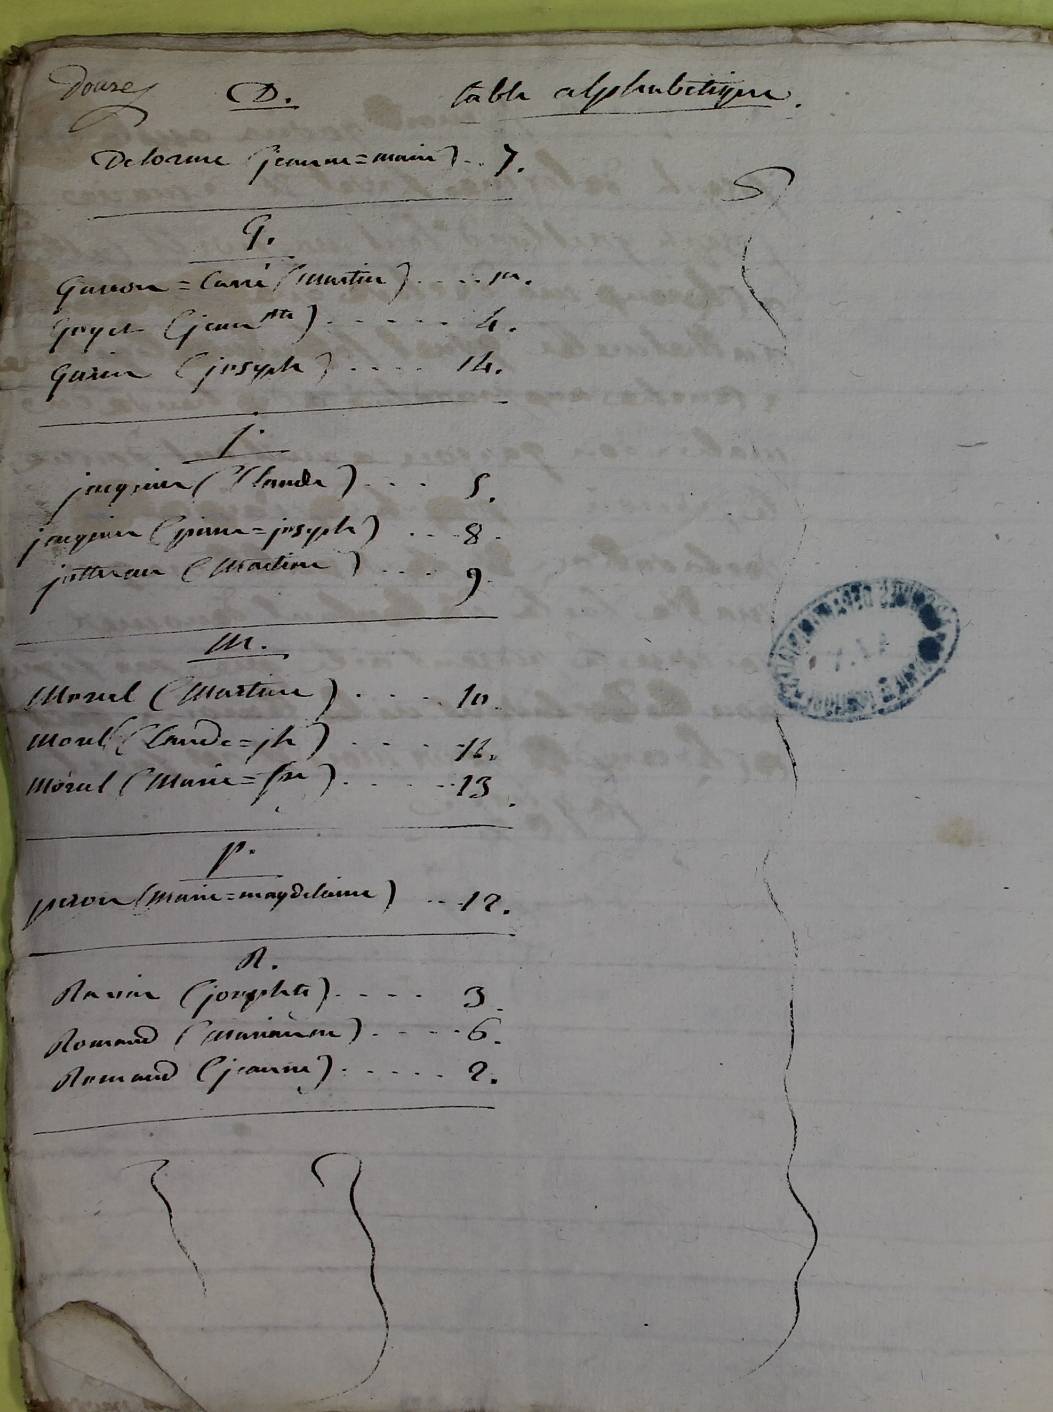 Douze
D. table alphabetique.
Delorme (jeanne=marie) .. 7.
G.
Guison = Carré (Martin) ....
Goyet (jean bte) ...... 4.
Guérin (joseph) .... 14.
j.
jacquier (Claude) .... 5.
jacquier (pierre=joseph) ... 8.
(Martine) .... 9.
M.
Morel (Martine) .... 10.
Morel (Claude=jh) .... 11.
Morel (Marie=fse) .... 13.
P.
piron (marie=magdelaine) .. 12.
R.
Ravier (josephte) .... 3.
Romand (Marianne) .... 6.
Romand (jeanne) ..... 2.